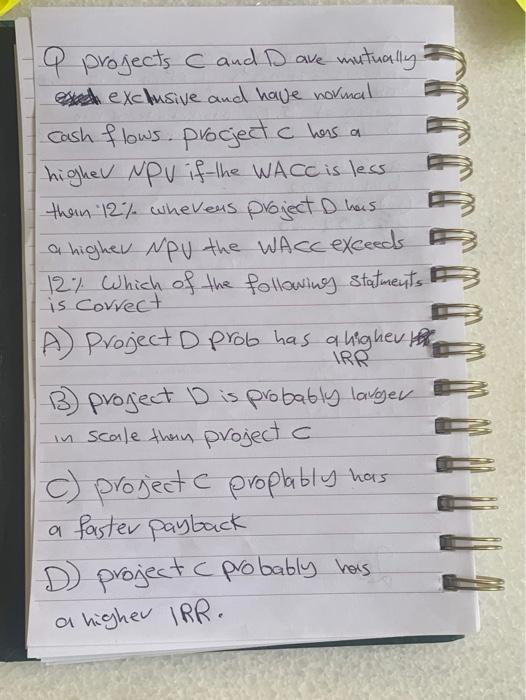 Q projects C and D are mutually
exclusive and have normal
cash flows. project C has a
higher NPV if the WACC is less
than 12% whereas project D has
a higher NPV the WACC exceeds
12% Which of the following statments
is correct
A) Project D prob has a higher
IRR
B) project D is probably larger
in scale than project C
C) project C proplably has
a faster payback
D) project C probably has
a higher IRR.